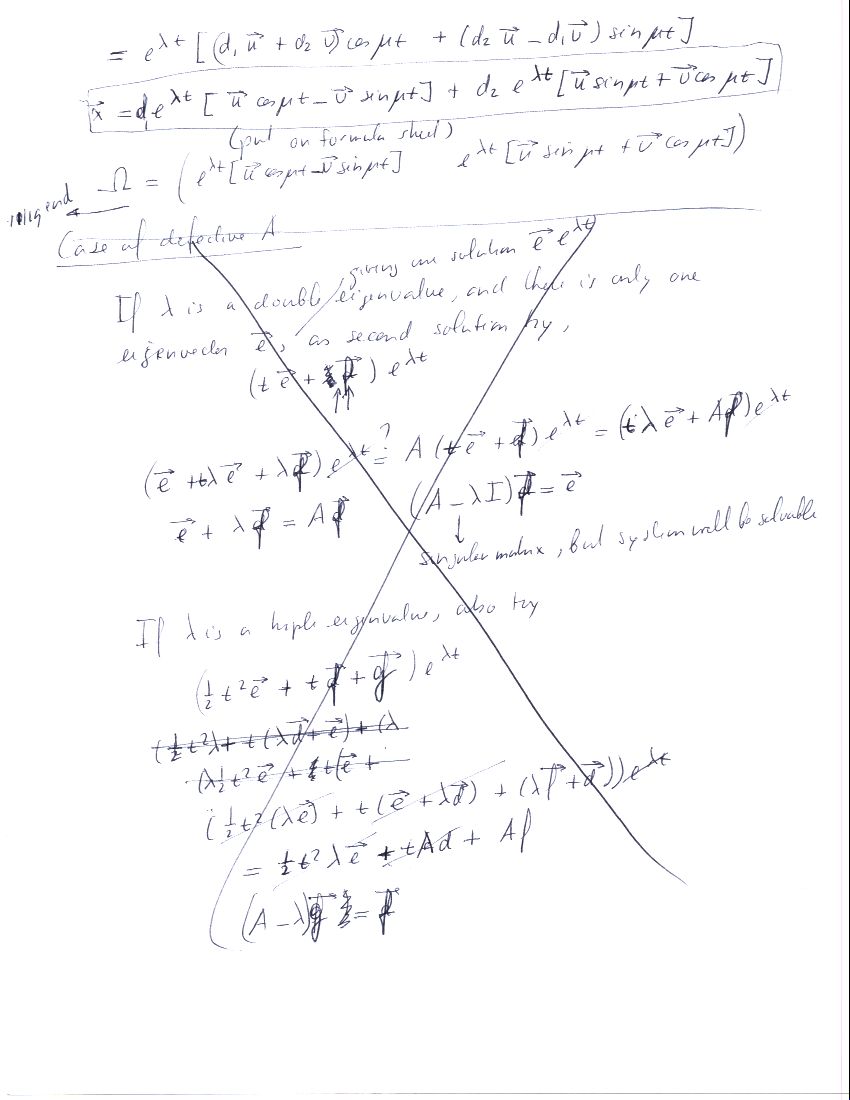 = e^{λt} [ (d₁ u⃗ + d₂ v⃗) cos μt + (d₂ u⃗ − d₁ v⃗) sin μt ]
x⃗ = d₁ e^{λt} [ u⃗ cos μt − v⃗ sin μt ] + d₂ e^{λt} [ u⃗ sin μt + v⃗ cos μt ]
(put on formula sheet)
Ω = ( e^{λt} [ u⃗ cos μt − v⃗ sin μt ]   e^{λt} [ u⃗ sin μt + v⃗ cos μt ] )
end
Case of defective A
giving one solution e⃗ e^{λt}
If λ is a double eigenvalue, and there is only one
eigenvector e⃗, as second solution try,
(t e⃗ + f⃗) e^{λt}
(e⃗ + tλe⃗ + λf⃗) e^{λt} =? A (te⃗ + f⃗) e^{λt} = (tλe⃗ + Af⃗) e^{λt}
e⃗ + λf⃗ = Af⃗   (A − λI) f⃗ = e⃗
singular matrix, but system will be solvable
If λ is a triple eigenvalue, also try
(½ t² e⃗ + t f⃗ + g⃗) e^{λt}
(½ t²λ + t (λd⃗ + e⃗) + (λ
(λ½ t² e⃗ + t(e⃗ +
(½ t² (λe⃗) + t (e⃗ + λd⃗) + (λf⃗ + d⃗)) e^{λt}
= ½ t² λe⃗ + tAd + Af
(A − λ) g⃗ = f⃗